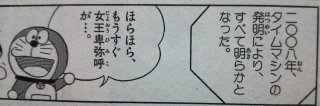 二〇〇八年、
タイムマシンの
発明により、
すべて明らかと
なった。
ほらほら、
もうすぐ
女王卑弥呼
が…。